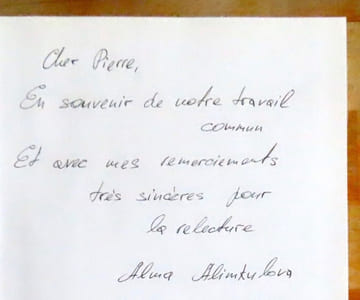 Cher Pierre,
En souvenir de notre travail
commun
Et avec mes remerciements
très sincères pour
la relecture
Alma Alimkulova